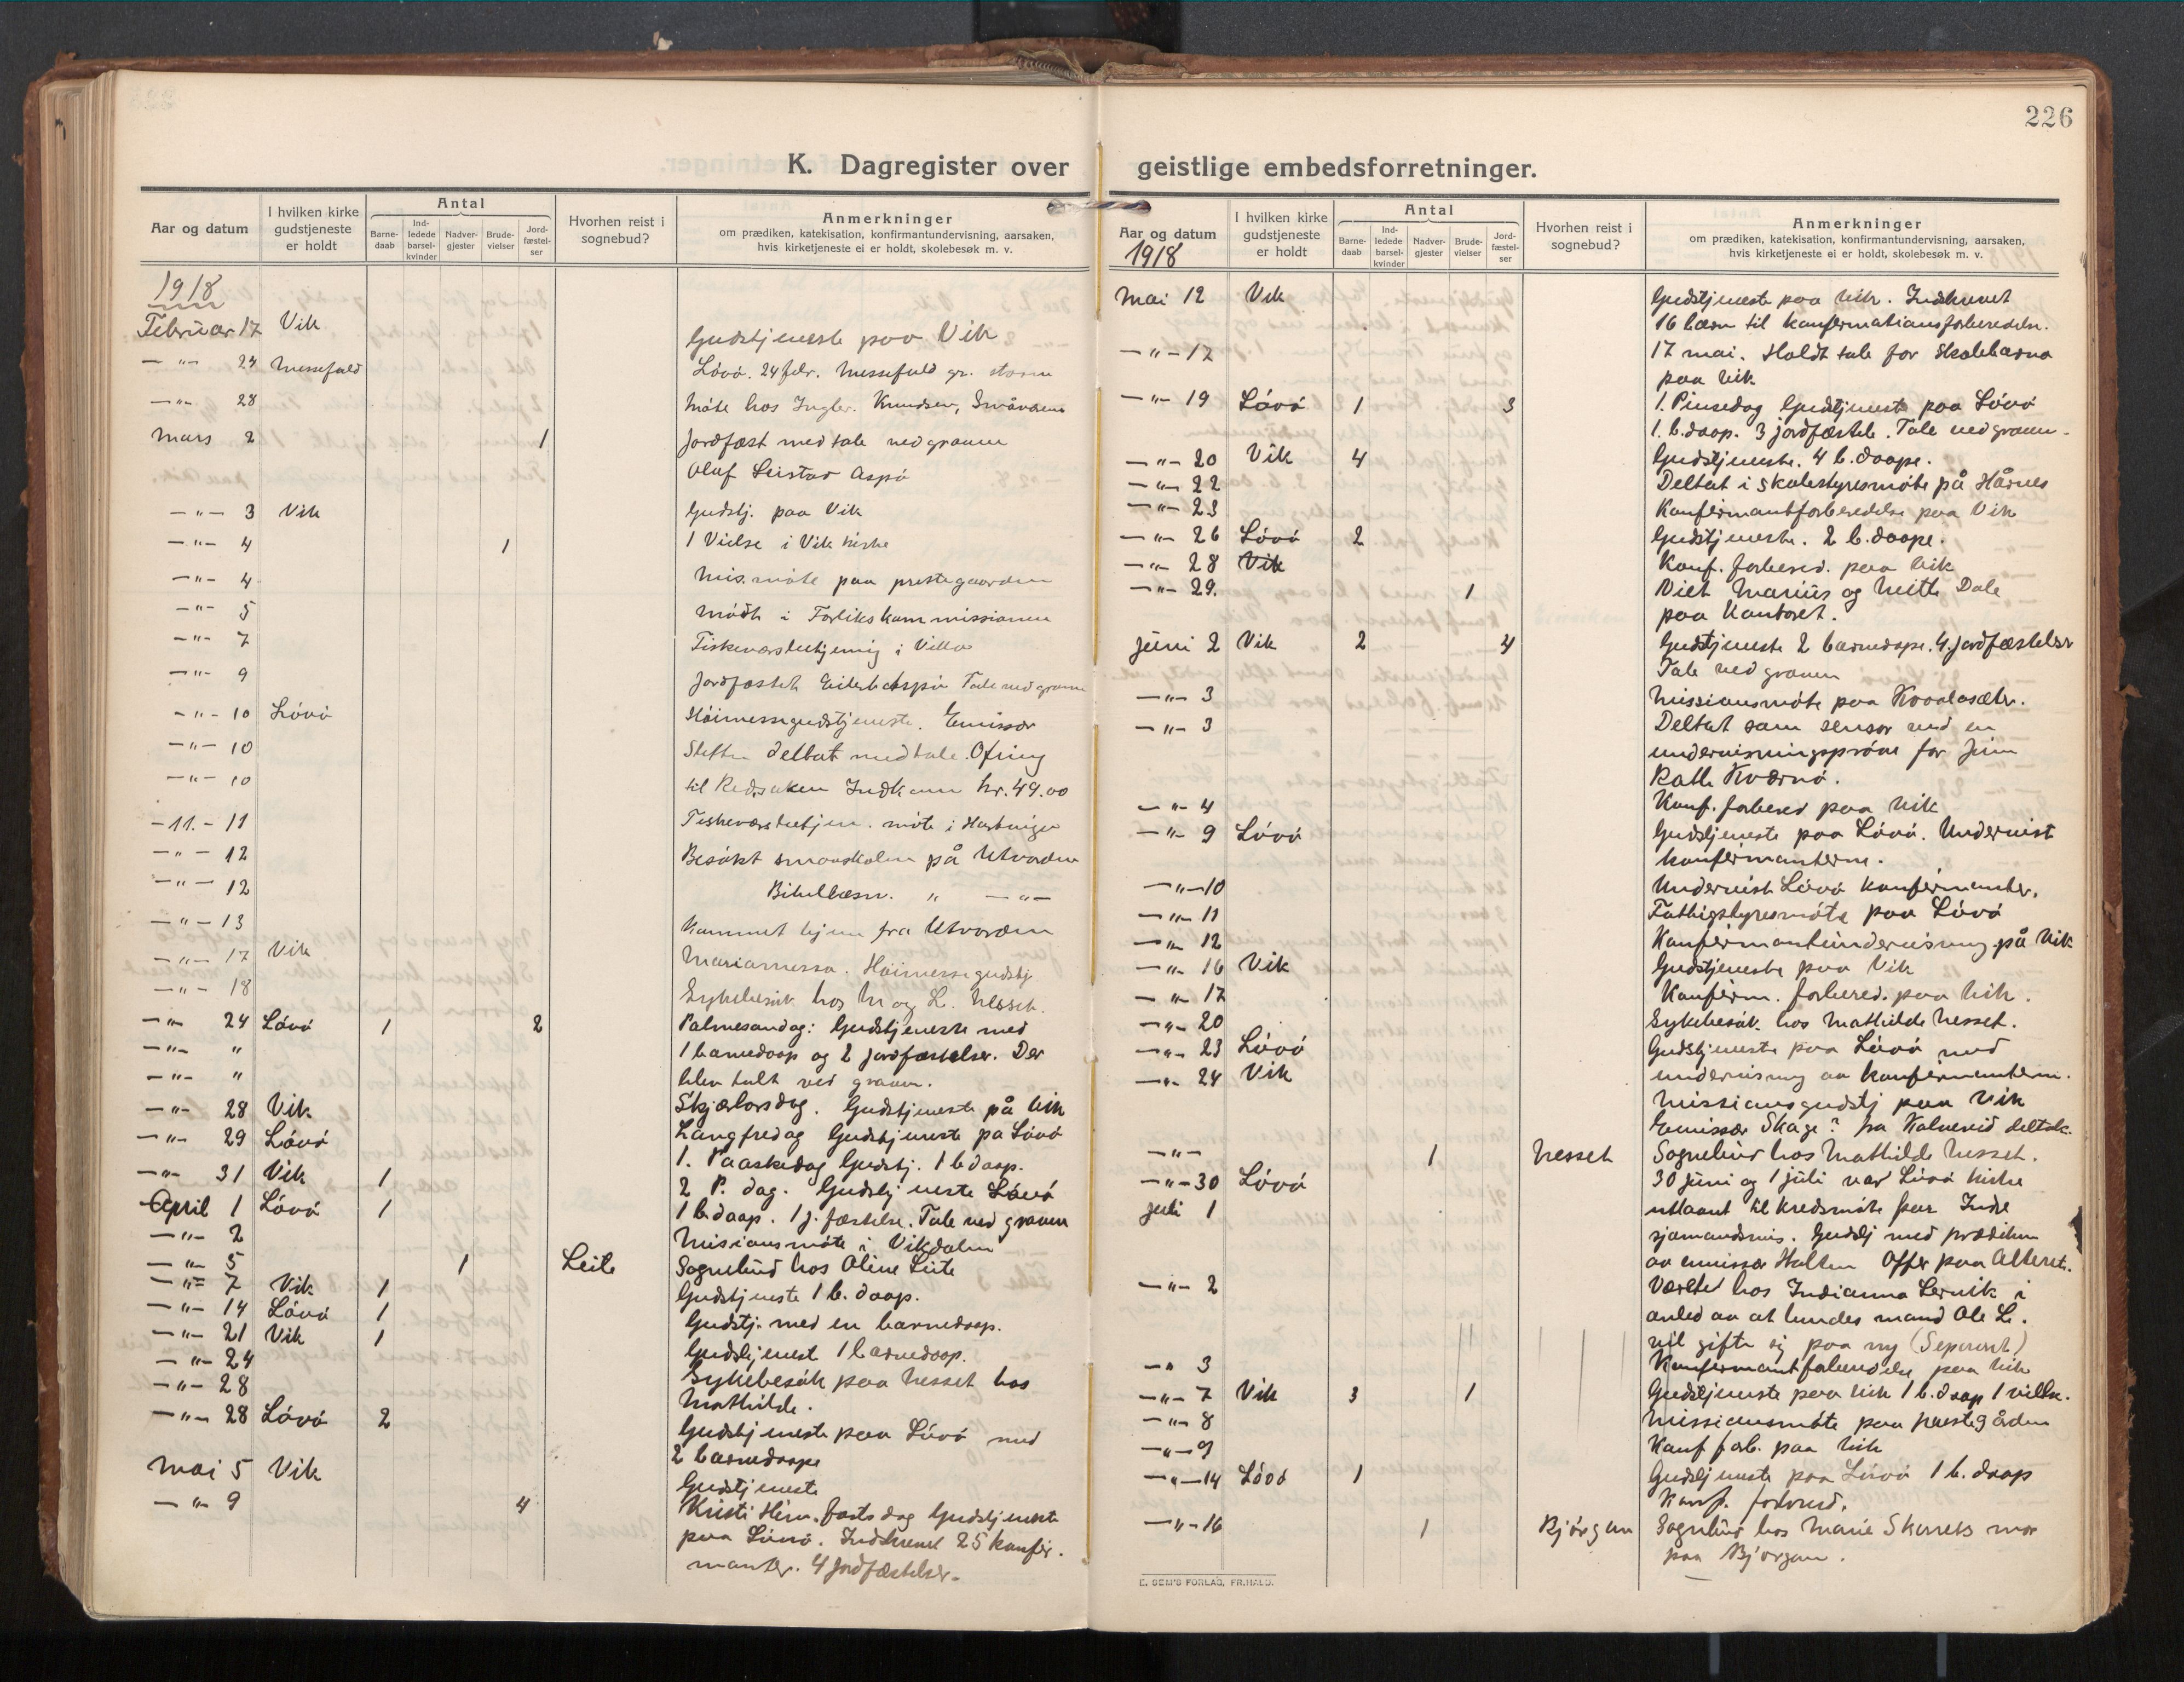 226
K. Dagregister over geistlige embedsforretninger.
Aar og datum
I hvilken kirke gudstjeneste er holdt
Antal
Barne-daab
Ind-ledede barsel-kvinder
Nadver-gjester
Brude-vielser
Jord-fæstel-ser
Hvorhen reist i sognebud?
Anmerkninger
om prædiken, katekisation, konfirmantundervisning, aarsaken,
hvis kirketjeneste ei er holdt, skolebesøk m. v.
1918
Februar 17 Vik Gudstjeneste paa Vik
— " — 24 Messefald Lövö. 24 febr. Messefald gr. storm
— " — 28 Möte hos Ingbr. Knudsen,
Mars 2 1 Jordfæst med tale ved graven
Oluf Leistad Aspö
— " — 3 Vik Gudstj. paa Vik
— " — 4 1 1 Vielse i Vik kirke
— " — 4 Mis. möte paa prestegaarden
— " — 5 Mödt i Forlikskommissionen
— " — 7 Fiskeværsbetjening i Villa
— " — 9 Jordfæstet Tale ved graven
— " — 10 Lövö Höimessegudstjeneste. Emissær
— " — 10 deltat med tale. Ofring
— " — 10 til Indkom kr. 49.00
— 11. — 11 Fiskeværsbetjen. möte i
— " — 12 Besökt smaaskolen på Utvorden
— " — 12 Bibellæsn. " — " —
— " — 13 Kommet hjem fra Utvorden
— " — 17 Vik Mariamessa. Höimessegudstj.
— " — 18 Sykebesök hos M og L. Nesset.
— " — 24 Lövö 1 2 Palmesöndag: Gudstjeneste med
— " — " 1 barnedaap og 2 jordfæstelser. Der
— " — " blev talt ved graven.
— " — 28 Vik Skjærtorsdag. Gudstjeneste på Vik
— " — 29 Lövö Langfredag Gudstjeneste pa Lövö
— " — 31 Vik 1 1. Paaskedag Gudstj. 1 b daap.
April 1 Lövö 1 2 P. dag. Gudstjeneste Lövö
1 b. daap. 1 j. fæstelse. Tale ved graven
— " — 2 Misionsmöte i Vikdalen
— " — 5 1 Leite Sognebud hos Oline Leite
— " — 7 Vik 1 Gudstjeneste 1 b. daap.
— " — 14 Lövö 1 Gudstj. med en barnedaap.
— " — 21 Vik 1 Gudstjenest 1 barnedaap.
— " — 24
— " — 28 Sykebesök paa Nesset hos
Mathilde.
— " — 28 Lövö 2 Gudstjeneste paa Lövö med
2 barnedaape
Mai 5 Vik Gudstjeneste
— " — 9 4 Kristi Him. farts dag Gudstjeneste
paa Lövö. Indskrevet 25 konfir-
manter. 4 jordfæstelser.
Aar og datum
1918
I hvilken kirke gudstjeneste er holdt
Antal
Barne-daab
Ind-ledede barsel-kvinder
Nadver-gjester
Brude-vielser
Jord-fæstel-ser
Hvorhen reist i sognebud?
Anmerkninger
om prædiken, katekisation, konfirmantundervisning, aarsaken,
hvis kirketjeneste ei er holdt, skolebesøk m. v.
Mai 12 Vik Gudstjeneste paa Vik. Indskrevet
16 børn til konfirmationsforberedelse.
— " — 17 17 mai. Holdt tale for skolebarna
paa Vik
— " — 19 Lövö 1 3 1. Pinsedag Gudstjeneste paa Lövö
1. b. daap. 3 jordfæstels. Tale ved graven.
— " — 20 Vik 4 Gudstjeneste. 4 b. daape.
— " — 22 Deltat i skolestyresmöte på Hårnes
— " — 23 Konfirmantforberedelse paa Vik
— " — 26 Lövö 2 Gudstjeneste. 2 b. daape.
— " — 28 Vik Konf. forbered. paa Vik
— " — 29. 1 Viet Marius og Mette Dale
paa Kontoret.
Juni 2 Vik 2 4 Gudstjeneste 2 barnedape. 4. jordfæstelser
Tale ved graven
— " — 3 Missionsmöte paa
— " — 3 Deltat som sensor ved en
undervisningspröve for
Kværnö.
— " — 4 Konf. forbered paa Vik
— " — 9 Lövö Gudstjeneste paa Lövö. Undervist
konfirmanterne.
— " — 10 Undervist Lövö konfirmanter.
— " — 11 Fattigstyresmöte paa Lövö
— " — 12 Konfirmantundervisning på Vik
— " — 16 Vik Gudstjeneste paa Vik
— " — 17 Konfirm. forbered. paa Vik.
— " — 20 Sykebesök hos Mathilde Nesset.
— " — 23 Lövö Gudstjeneste paa Lövö med
undervisning av konfirmantern.
— " — 24 Vik Missionsgudstj paa Vik
Emissær Skage? fra Kolvereid deltok.
— " — 1 Nesset Sognebud hos Mathilde Nesset.
— " — 30 Lövö 30 juni og 1 juli var Lövö kirke
Juli 1 utlaant til kredsmöte for Indre
sjömandsmis. Gudstj med prædiken
av emissær Holten Offer paa Alteret.
— " — 2 Været hos Indianna Lervik i
anled av at hendes mand Ole L.
vil gifte sig paa ny (Separert)
— " 3 Konfirmantforberedelse paa Vik
— " — 7 Vik 3 1 Gudstjeneste paa Vik 1 b. daap 1 vielse.
— " — 8 Missionsmöte paa prestegården
— " — 9 Konf forb. paa Vik
— " — 14 Lövö 1 Gudstjeneste paa Lövö 1 b. daap
Konf. forbered.
— " — 16 1 Bjørgan Sognebud hos Marie mor
paa Bjørgan.
E. SEM'S FORLAG, FR.HALD.